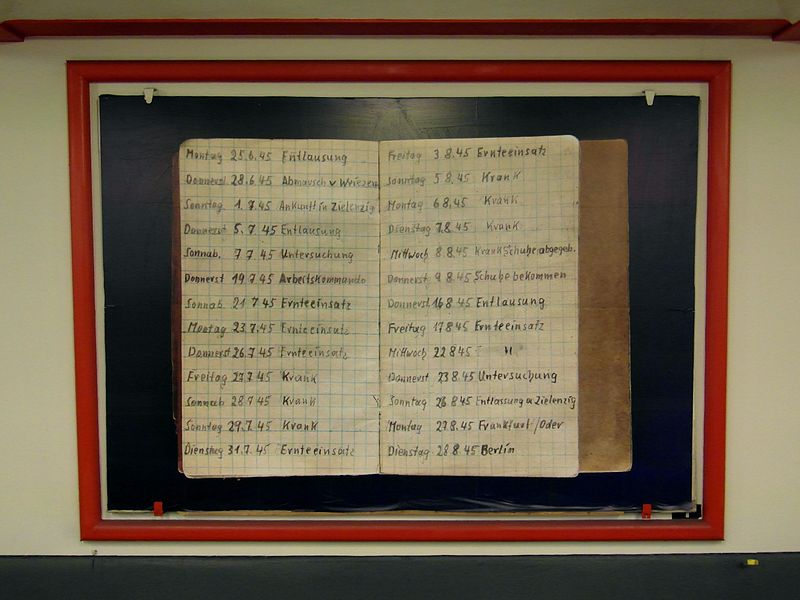 Montag 25.6.45 Entlausung
Donnerst 28.6.45 Abmarsch v Wriezen
Sonntag 1.7.45 Ankunft in Zielenzig
Donnerst 5.7.45 Entlausung
Sonnab. 7 7 45 Untersuchung
Donnerst 19 7 45 Arbeitskommando
Sonnab 21 7 45 Ernteeinsatz
Montag 23.7.45 Ernteeinsatz
Donnerst 26.7 45 Ernteeinsatz
Freitag 27 7 45 Krank
Sonnab 28.7 45 Krank
Sonntag 29.7.45 Krank
Dienstag 31.7.45 Ernteeinsatz
Freitag 3 8.45 Ernteeinsatz
Sonntag 5 8.45 Krank
Montag 6 8.45 Krank
Dienstag 7.8.45 Krank
Mittwoch 8.8.45 Krank Schuhe abgegeb.
Donnerst 9 8.45 Schuhe bekommen
Donnerst 16 8.45 Entlausung
Freitag 17 8.45 Ernteeinsatz
Mittwoch 22 8 45 "
Donnerst 23 8.45 Untersuchung
Sonntag 26.8.45 Entlassung a Zielenzig
Montag 27 8.45 Frankfurt/Oder
Dienstag 28 8 45 Berlin